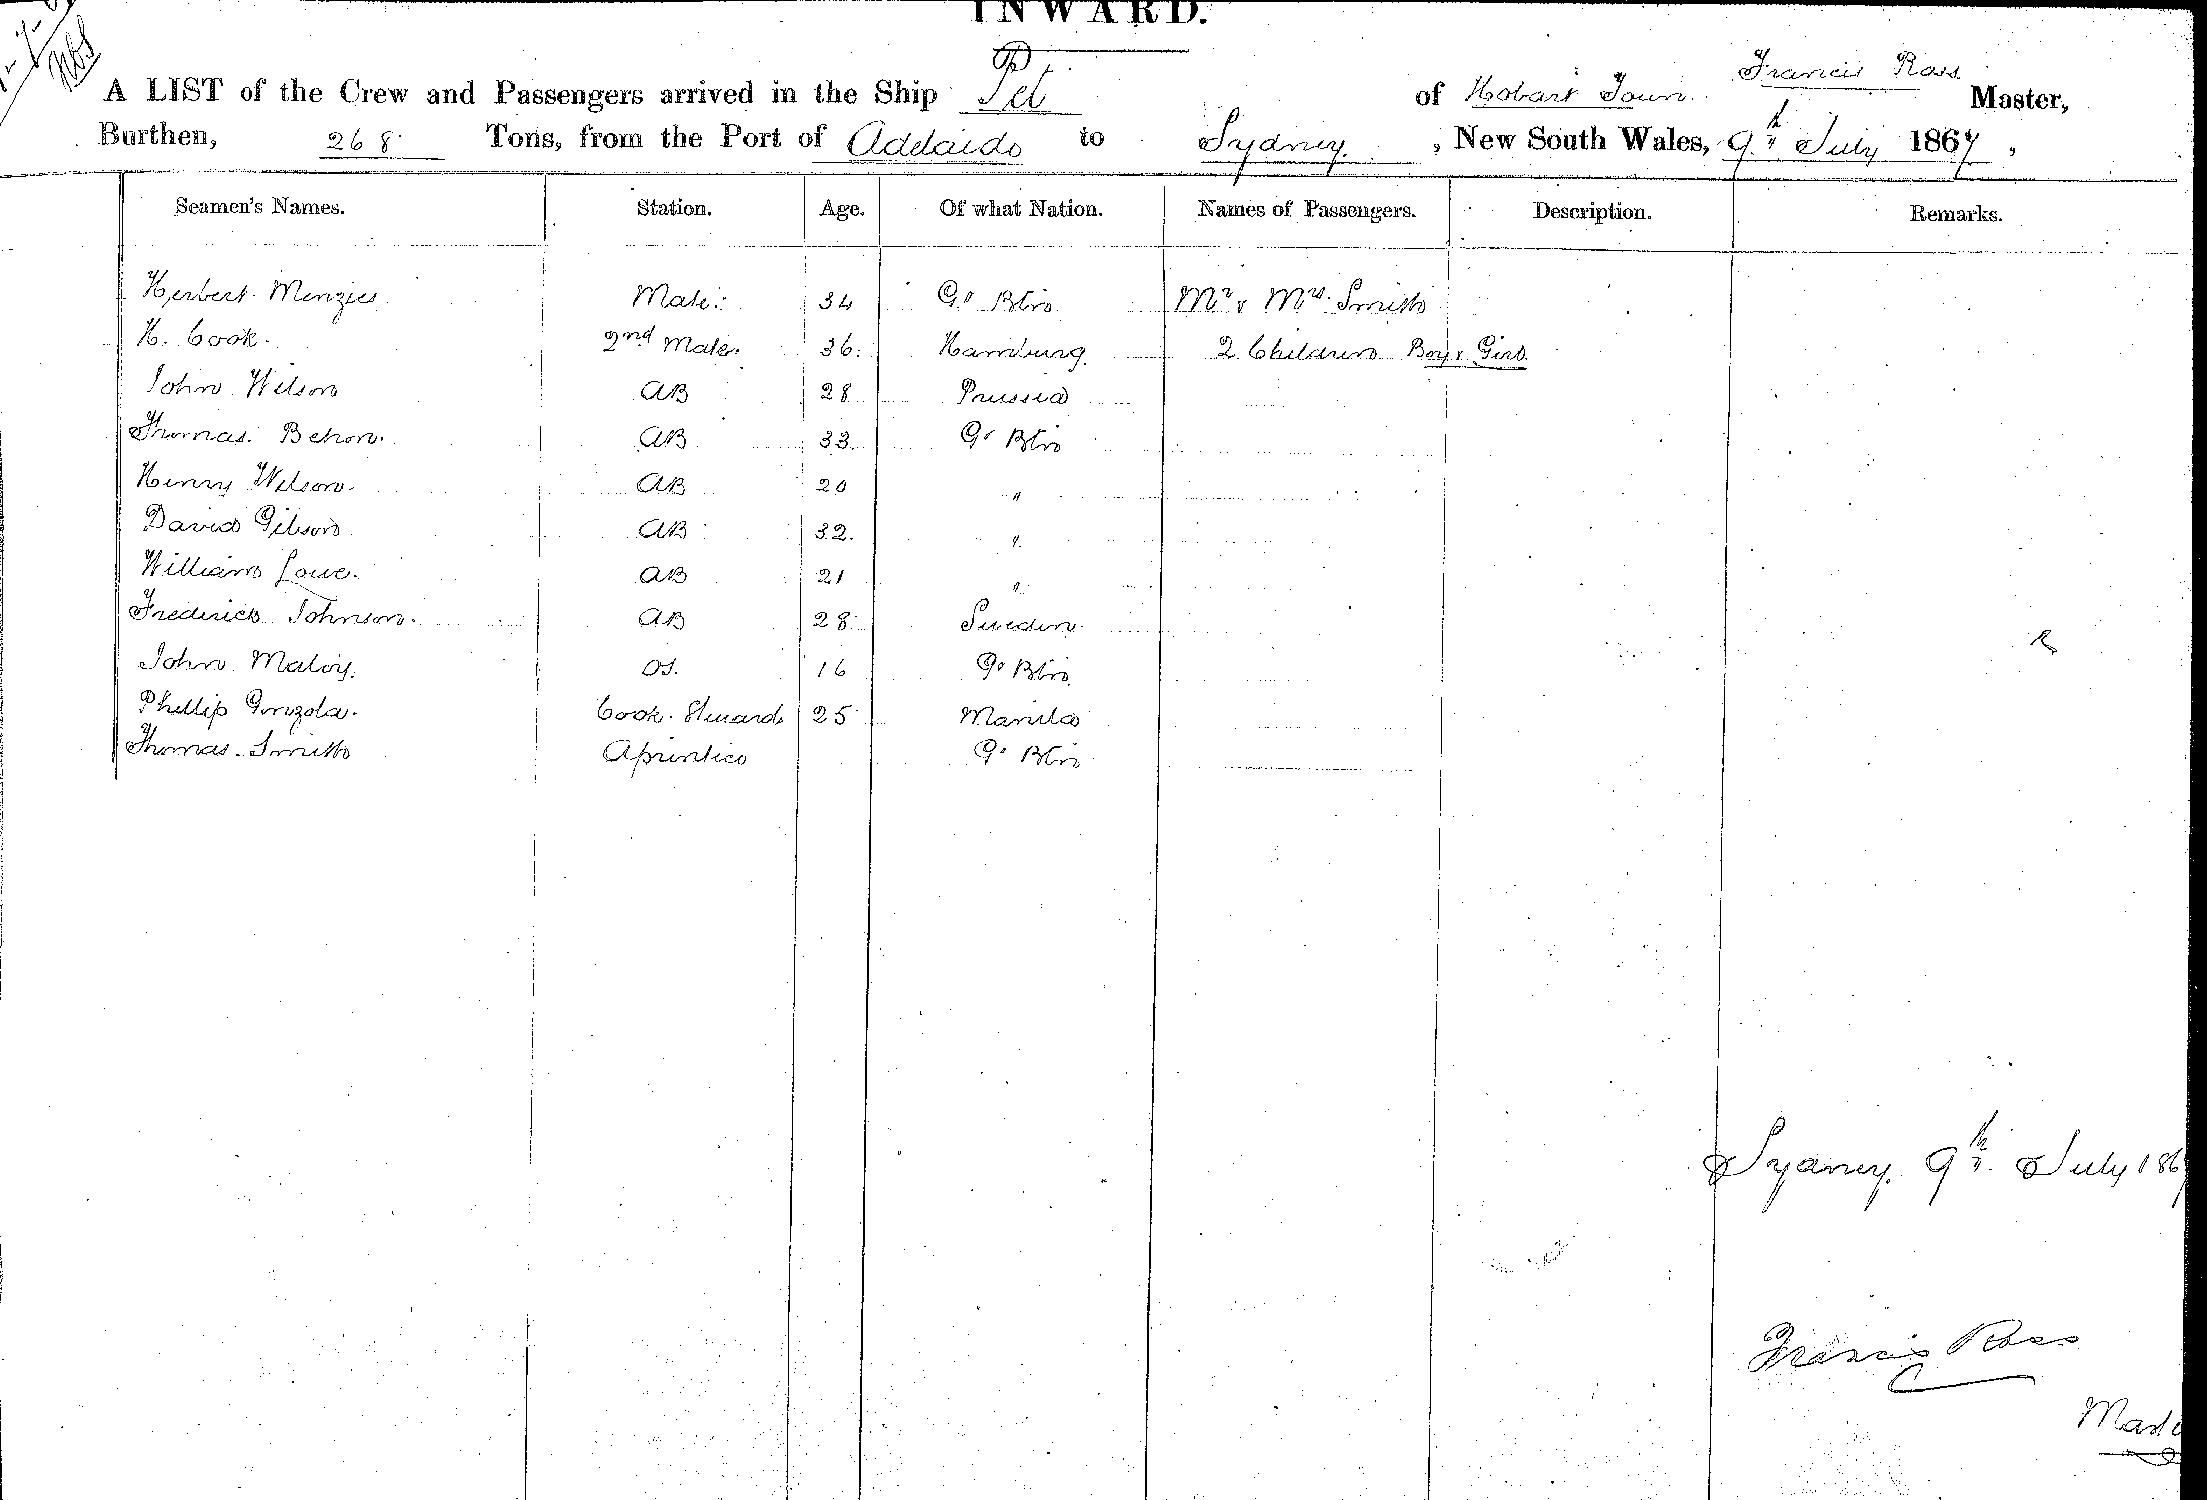 INWARD.
A LIST of the Crew and Passengers arrived in the Ship Pet of Hobart Town Francis Ross Master,
Burthen, 268 Tons, from the Port of Adelaide to Sydney, New South Wales, 9th July 1867,
Seamen's Names. Station. Age. Of what Nation. Names of Passengers. Description. Remarks.
Herbert Menzies Mate 34 Gt Btn Mr & Mrs Smith
H. Cook 2nd Mate 36 Hamburg 2 Children Boy & Girl
John Wilson AB 28 Prussia
Thomas AB 33 Gt Btn
Henry Wilson AB 20 "
David Gibson AB 32 "
William Lowe AB 21 "
Frederick Johnson AB 28 Sweden
John Maloy OS 16 Gt Btn
Phillip Gonzola Cook Steward 25 Manila
Thomas Smith Aprentice Gt Btn
Sydney 9th July 1867
Francis Ross